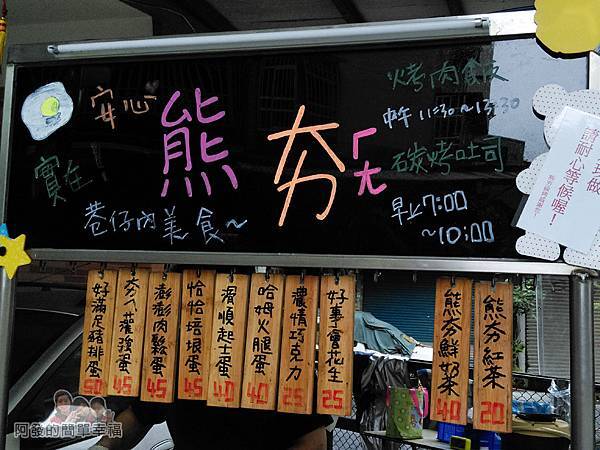 安心
實在!
熊夯ㄏㄤ
巷仔內美食~
烤肉飯
中午 11:30~13:30
碳烤吐司
早上7:00
~10:00
請耐心等候喔!
好滿足豬排蛋 50
夯ㄟ灌漢蛋 45
澎澎肉鬆蛋 45
恰恰培根蛋 45
滑順起士蛋 40
哈姆火腿蛋 40
濃情巧克力 25
好事會花生 25
熊夯鮮奶茶 40
熊夯紅茶 20
阿毅的簡單幸福